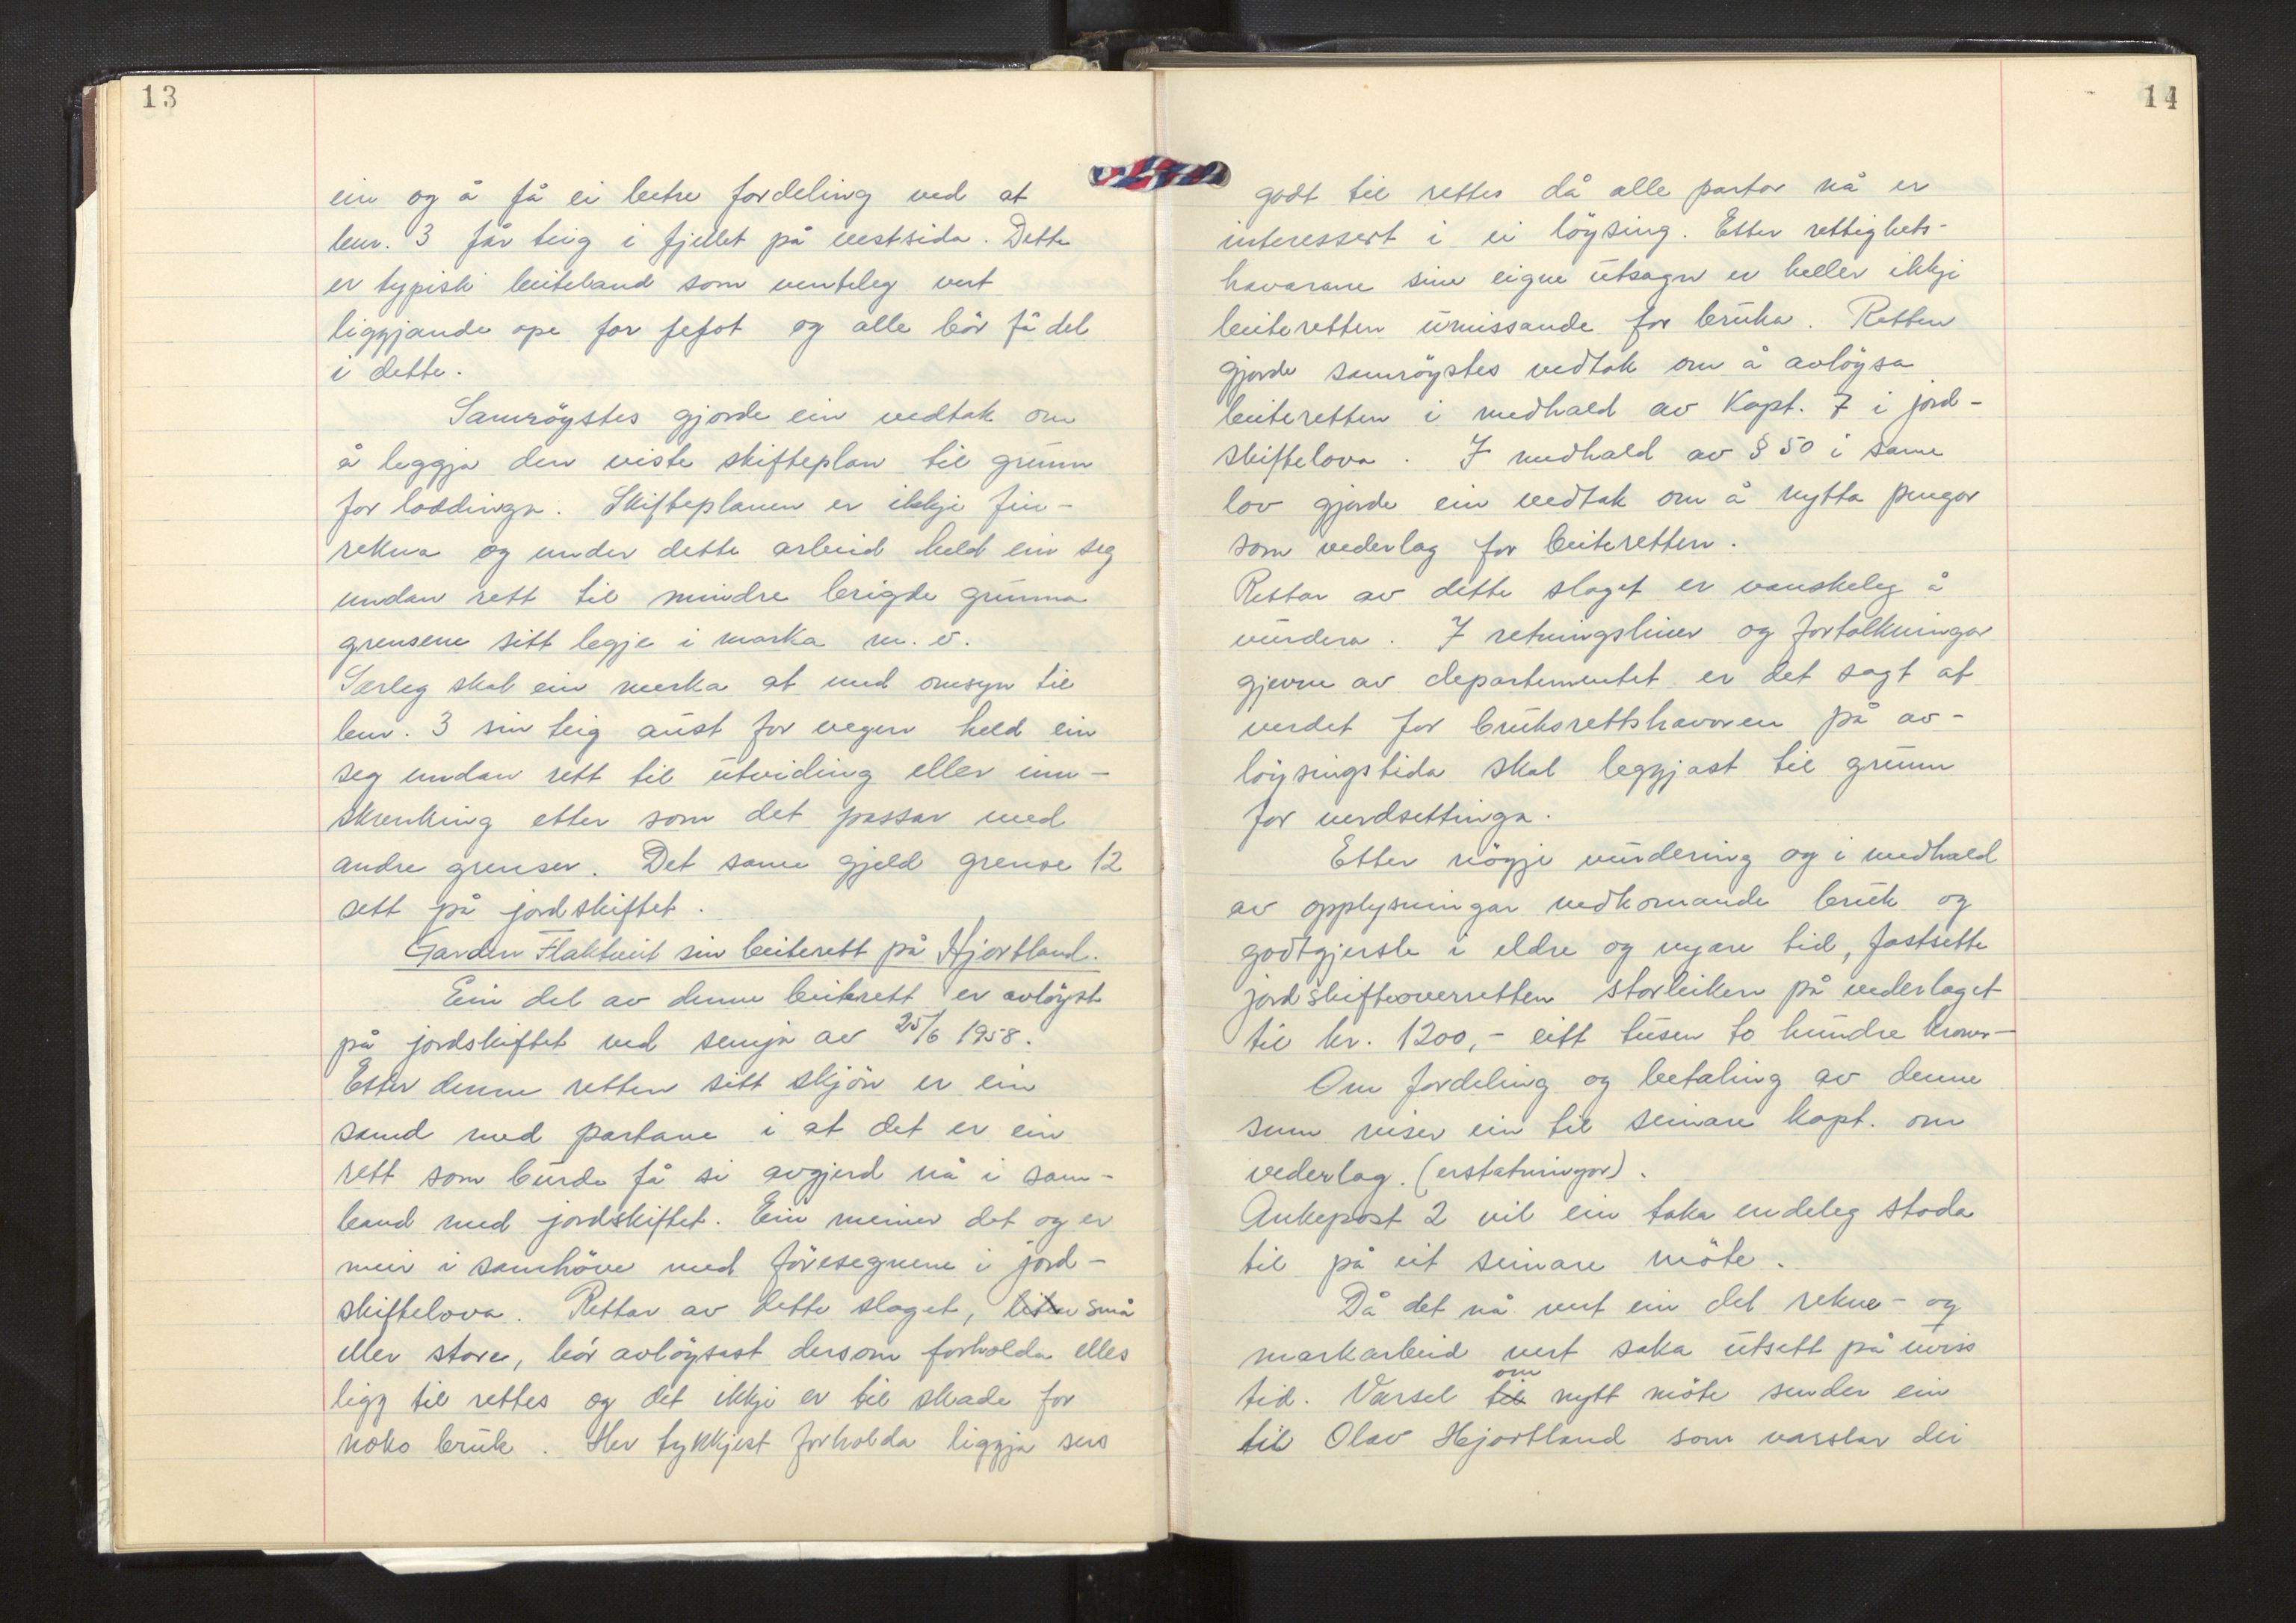 13
ein og å få ei betre fordeling ved at
bnr. 3 får teig i fjellet på vestsida. Dette
er typisk beiteland som venteleg vert
liggjande ope for fefot og alle bör få del
i dette.
Samröystes gjorde ein vedtak om
å leggja den viste skifteplan til grunn
for loddinga. Skifteplanen er ikkje fin-
rekna og under dette arbeid held ein seg
undan rett til mindre brigde grunna
grensene sitt legje i marka m. v.
Særleg skal ein merka at med omsyn til
bnr. 3 sin teig aust for vegen held ein
seg undan rett til utviding eller inn-
skrenking etter som det passar med
andre grenser. Det same gjeld grense 12
sett på jordskiftet.
Garden Flaktveit sin beiterett på Hjortland.
Ein del av denne beiterett er avlöyst
på jordskiftet ved semja av 25/6 1958.
Etter denne retten sitt skjön er ein
samd med partane i at det er ein
rett som burde få si avgjerd nå i sam-
band med jordskiftet. Ein meiner det og er
meir i samhöve med föresegnene i jord-
skiftelova. Rettar av dette slaget, små
eller store, bör avlöysast dersom forholda elles
ligg til rettes og det ikkje er til skade for
noko bruk. Her tykkjest forholda liggja sers
14
godt til rettes då alle partar nå er
interessert i ei löysing. Etter rettighets-
havarane sine eigne utsagn er heller ikkje
beiteretten umissande for bruka. Retten
gjorde samröystes vedtak om å avlöysa
beiteretten i medhald av Kapt. 7 i jord-
skiftelova. I medhald av § 50 i same
lov gjorde ein vedtak om å nytta pengar
som vederlag for beiteretten.
Rettar av dette slaget er vanskeleg å
vurdera. I retningsliner og fortolkningar
gjevne av departementet er det sagt at
verdet for bruksrettshavaren på av-
löysingstida skal leggjast til grunn
for verdsettinga.
Etter nögje vurdering og i medhald
av opplysningar vedkomande bruk og
godtgjersle i eldre og nyare tid, fastsette
jordskifteoverretten storleiken på vederlaget
til kr. 1200,- eitt tusen to hundre kroner-
Om fordeling og betaling av denne
sum viser ein til seinare kapt. om
vederlag. (erstatningar).
Ankepost 2 vil ein taka endeleg stoda
til på eit seinare möte.
Då det nå vert ein del rekne- og
markarbeid vert saka utsett på uviss
tid. Varsel om nytt möte sender ein
til Olav Hjortland som varslar dei